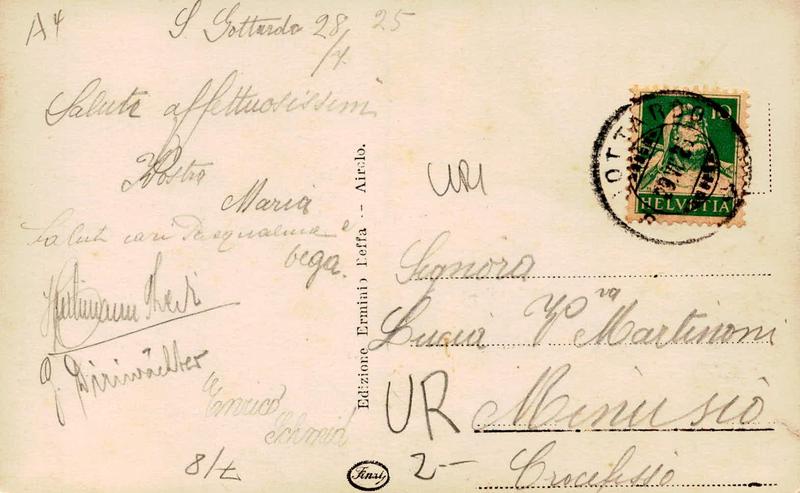 A4
S. Gottardo 28/7. 25
Saluti affettuosissimi
Vostra
Maria
Saluti cari Pasqualina e
bega.
Hartmann
G. Dirriwächter
Enrico
Schmid
8/7
Edizione Ermini Leffa -- Airolo.
Finzi
URI
OTTARDO
10
HELVETIA
Signora
Lucia Va Martinoni
UR Minusio
2- Crocefisso